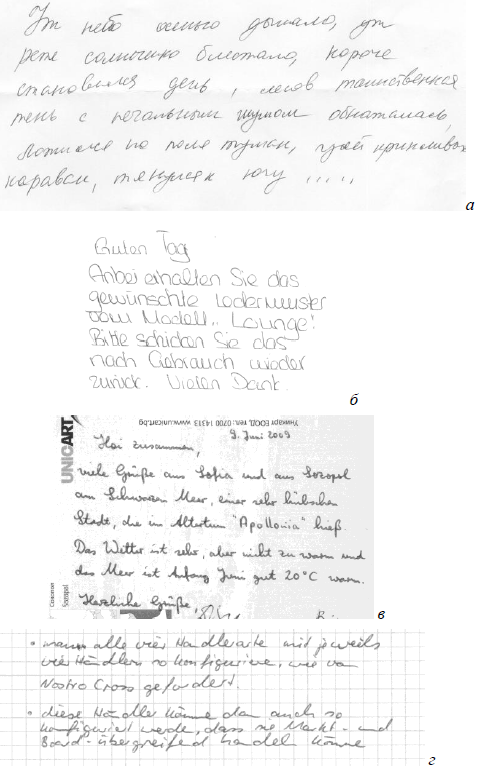 Уж небо осенью дышало, уж
реже солнышко блистало, короче
становился день, лесов таинственная
тень с печальным шумом обнажалась,
Ложился на поля туман, гусей крикливых
караван, тянулся к югу .....
а
Guten Tag
Anbei erhalten Sie das
gewünschte Ledermuster
vom Modell „ Lounge!
Bitte schicken Sie das
nach Gebrauch wieder
zurück. Vielen Dank.
б
Уникарт ЕООД, тел.: 0700 14313 www.unicart.bg
UNICART
9. Juni 2009
Hoi zusammen,
viele Grüße aus Sofia und aus Sozopol
am Schwarzen Meer, einer sehr hübschen
Stadt, die im Altertum "Apollonia" hieß.
Das Wetter ist sehr, aber nicht zu warm und
das Meer ist Anfang Juni gut 20°C warm.
Herzliche Grüße,
Созопол
Sozopol
в
• alle vier Handlerarte mit jeweils
vier Händlern so konfigurine, wie von
Nostro Cross gefordert.
• diese Händler könne dan auch so
konfiguriert werde, dass sie Markt- und
Board-übergreifed handel könne
г